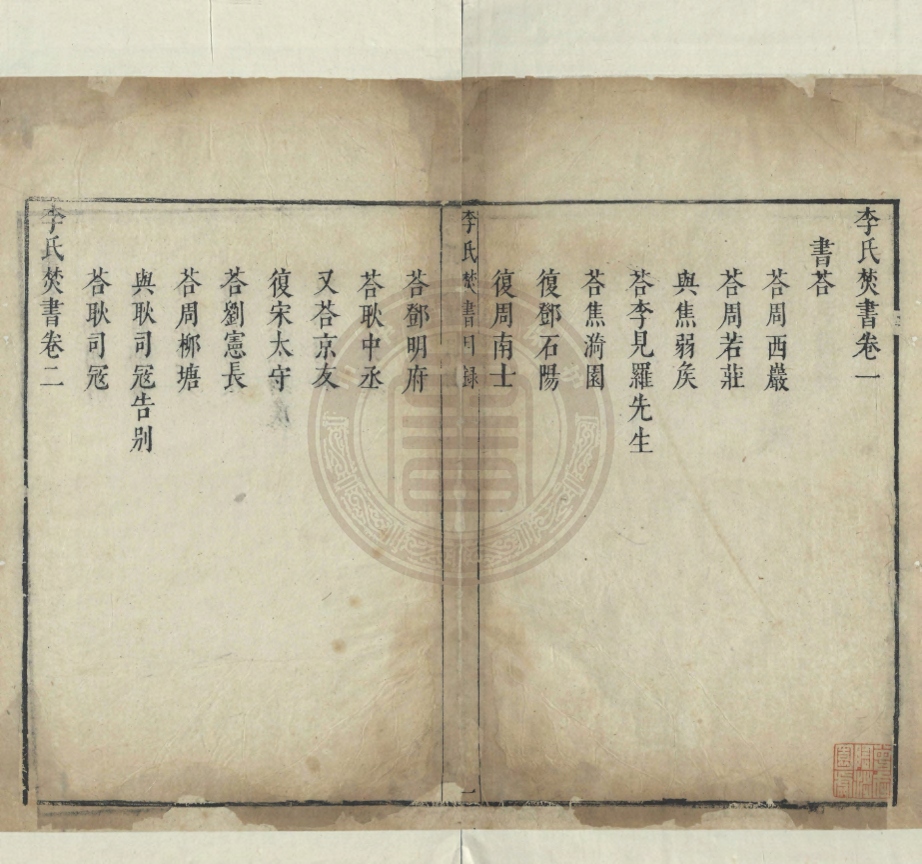 李氏焚書卷一
書荅
荅周西巖
荅周若莊
與焦弱矦
荅李見羅先生
荅焦漪園
復鄧石陽
復周南士
李氏焚書目錄
一
荅鄧明府
荅耿中丞
又荅京友
復宋太守
荅劉憲長
荅周柳塘
與耿司冦告别
荅耿司冦
李氏焚書卷二